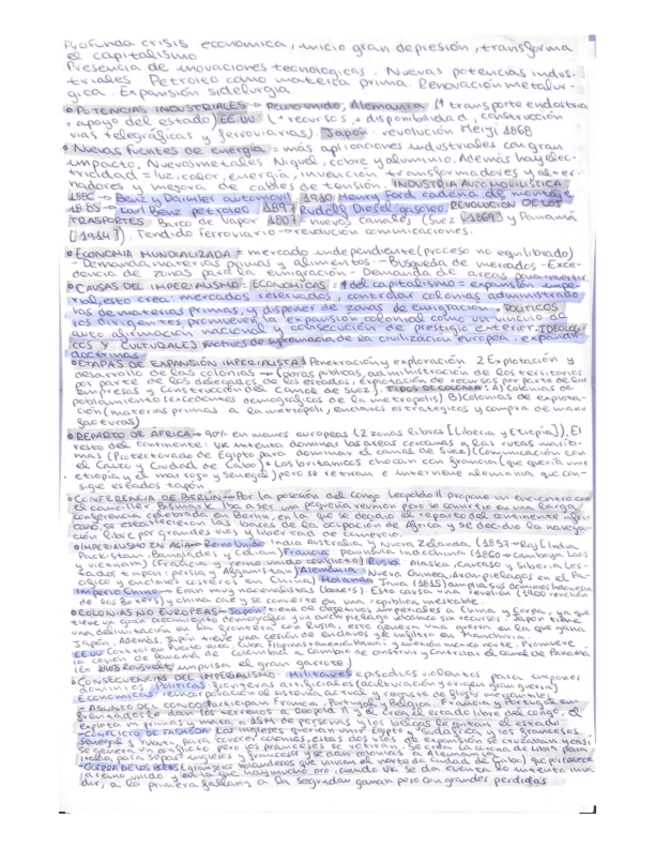 Profunda crisis economica, inicio gran depresión, transforma
el capitalismo
Presencia de inovaciones tecnologicas. Nuevas potencias indus-
triales Petroleo como materia prima. Renovación metalur-
gica. Expansión siderurgia
• POTENCIAS INDUSTRIALES → Reino unido, Alemania (↑ transporte endostria
+ apoyo del estado) EE UU (+ recursos, + disponibilidad, construcción
vias telegráficas y ferroviarias) Japón: revolución Meiyi 1868
• Nuevas fuentes de energía = más aplicaciones industriales con gran
impacto. Nuevos metales Niquel, cobre y aluminio. Además hay elec-
tricidad = luz, calor, energia, invención transformadores y alter-
nadores y mejora de cables de tensión. INDUSTRIA AUTOMOVILISTICA
1886 → Benz y Daimler automovil 1910 Henry Ford cadena de montaje
1885 → Karl Benz petroleo 1897 Rudolf Diesel gaseoso. REVOLUCION DE LOS
TRASPORTES Barco de vapor 1807 = nuevos canales (Suez [1869] y Panamá
[1914]). Tendido ferroviario → revolución comunicaciones.
• ECONOMIA MUNDIALIZADA = mercado independiente (proceso no equilibrado)
- Demanda materias primas y alimentos - Busqueda de mercados - Exce-
dencia de zonas para la emigración - Demanda de areas para invertir
• CAUSAS DEL IMPERIALISMO = ECONOMICAS = ↑ del capitalismo = expansión impe-
rial, esto crea: mercados reservados, controlar colonias administrado
las de materias primas, y disponer de zonas de emigración. POLITICOS
los dirigentes promueven la expansión colonial como un vinculo de
auto afirmación nacional y consecución de prestigio exterior. IDEOLOGI-
COS Y CULTURALES motivos de supremacia de la civilización europea. expandir
doctrinas.
• ETAPAS DE EXPANSIÓN IMPERIALISTA: 1 Penetración y exploración 2 Explotación y
desarrollo de las colonias → (obras públicas, administración de los territorios
por parte de los delegados de los estados, explotación de recursos por parte de las
empresas y construcción del Canal de Suez). TIPOS DE COLONIA: A) Colonias de
poblamiento (excedentes demograficos de la metropolis) B) Colonias de explota-
ción (materias primas a la metrópoli, enclaves estrategicos y compra de manu
facturas)
• REPARTO DE ÁFRICA → 90% en manos europeas (2 zonas libres [Liberia y Etiopia]). El
resto del continente: UK intenta dominar las areas cercanas a las rutas mariti-
mas (Protectorado de Egipto para dominar el canal de Suez) (Comunicación con
el Cairo y Ciudad de Cabo) • Los britanicos chocan con francia (que queria unir
etiopia y el mar rojo y Senegal) pero se retiran e interviene alemania que con-
sigue estados tapón.
• CONFERENCIA DE BERLÍN → Por la posesión del Congo Leopoldo II propone un encuentro con
el canciller Bismark. Iba a ser una pequeña reunion pero se convirtio en una larga
conferencia celebrada en Berlin, en la que se decidio el reparto del continente afri-
cano, se establecieron las bases de la ocupación de Africa y se decidio la navega-
ción libre por grandes rios y libertad de comercio.
• IMPERIALISMO EN ASIA → Reino Unido: India Australia y Nueva Zelanda (1857 → Raj [India
Packistan, Bangladej y Ceilan) Francia: peninsula indochina (1860 → Camboya Laos
y vietnam) (Francia y reino unido conflicto) Rusia: Alaska, Caucaso y Siberia (es-
tados tapon: persia y Afganistan) Alemania: Nueva Guinea, Archipielagos en el Pa-
cifico y enclaves costeros en China) Holanda Java (1815) amplia sus dominios indonesia
Imperio Chino → Eran muy nacionalistas (boxers). Esto causa una revelión (1900 revelión
de los Boxers) y China cae y se convierte en una republica inestable.
• COLONIAS NO EUROPEAS → Japón: tiene de objetivos imperiales a China y Corea, ya que
tiene un gran crecimiento demografico y un archipielago alejando sin recursos. Japon tiene
una delimitación en la frontera con Rusia, esto genera una guerra en la que gana
Japón. Además, Japón tiene una cesión de enclaves y se infiltra en Manchuria.
EE UU Control en Puerto rico, Cuba, Filipinas, Hawai y invasión mexico norte. Promueve
la cesión de Panamá de Colombia a cambio de construir y controlar el canal de Panamá
(En 1903 Roosvelt impulsa el gran garrote)
• CONSECUENCIAS DEL IMPERIALISMO: Militares episodios violentos para imponer
dominios. Politicas: Fronteras artificiales (aculturación y origen gran guerra)
Economicas: reincorporación al sistema actual y reajuste de flujos mercantiles
- ASUNTO DEL CONGO: Participan Francia, Portugal y Belgica. Francia y Portugal en-
frentados dan los terrenos a Leopold II y el crea el estado libre del congo, el
explota m. primas y mata a 55M de personas y los belgas le quitan el estado
- CONFLICTO DE FASHODA: Los ingleses querian unir Egipto y Sudafrica y los franceses
Senegal y Yubuti para conectar colonias, estas dos vias de expansión se cruzaban y así
se genera un conflicto pero los franceses se retiran. Se crea la colonia de Libia para
italia, para separar ingleses y franceses y se dan colonias a Alemania
- GUERRA DE LOS BOERS (granjeros holandeses que vivian al norte de Ciudad de Cabo) que pertenece
a reino unido y que hay mucho oro, cuando UK se da cuenta lo intenta inva
dir, a la primera fallan y a la segunda ganan pero con grandes perdidas